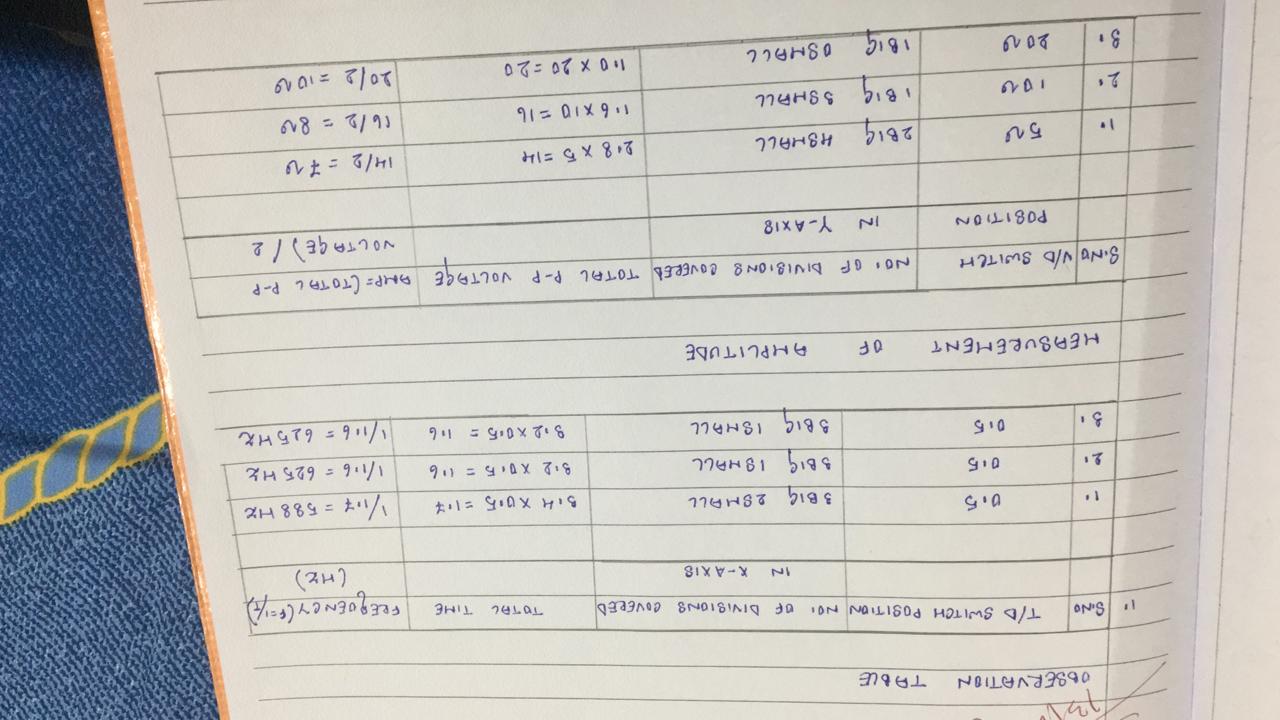 OBSERVATION TABLE
1. S.NO T/D SWITCH POSITION NO. OF DIVISIONS COVERED TOTAL TIME FREQUENCY (F=1/T)
IN X-AXIS (HZ)
1. 0.5 3 BIG 2 SMALL 3.4 X 0.5 = 1.7 1/1.7 = 588 HZ
2. 0.5 3 BIG 1 SMALL 3.2 X 0.5 = 1.6 1/1.6 = 625 HZ
3. 0.5 3 BIG 1 SMALL 3.2 X 0.5 = 1.6 1/1.6 = 625 HZ
MEASUREMENT OF AMPLITUDE
S.NO V/D SWITCH NO. OF DIVISIONS COVERED TOTAL P-P VOLTAGE AMP = (TOTAL P-P
POSITION IN Y-AXIS VOLTAGE) / 2
1. 5V 2 BIG 4 SMALL 2.8 X 5 = 14 14/2 = 7V
2. 10V 1 BIG 3 SMALL 1.6 X 10 = 16 16/2 = 8V
3. 20V 1 BIG 0 SMALL 1.0 X 20 = 20 20/2 = 10V